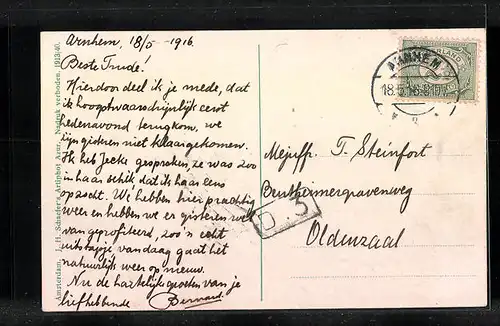 Arnhem, 18/5 - 1916.
Beste Trude!
Hierdoor deel ik je mede, dat
ik hoogstwaarschijnlijk eerst
hedenavond terugkom, we
zijn gisteren niet klaargekomen.
Ik heb Jecke gesproken, ze was zoo
in haar schik dat ik haar eens
opzocht. We hebben hier prachtig
weer en hebben we er gisteren
van geprofiteerd, zoo'n echt
uitstapje vandaag gaat het
natuurlijk weer op nieuw.
Nu de hartelijke groeten van je
liefhebbende Bernard.
Mejuffr. T. Steinfort
Bentheimergravenweg
Oldenzaal
ARNHEM
18.5.16
D. 3
Amsterdam. J. H. Schaefer's Artiphot Amst. Nadruk verboden. 1913-40.